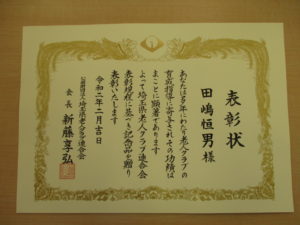 表彰状
田嶋恒男様
あなたは多年にわたり老人クラブの
育成指導に寄与されその功績は
まことに顕著であります
よって埼玉県老人クラブ連合会
表彰規程に基づき記念品を贈り
表彰いたします
令和二年二月吉日
公益財団法人埼玉県老人クラブ連合会
会長 新藤享弘